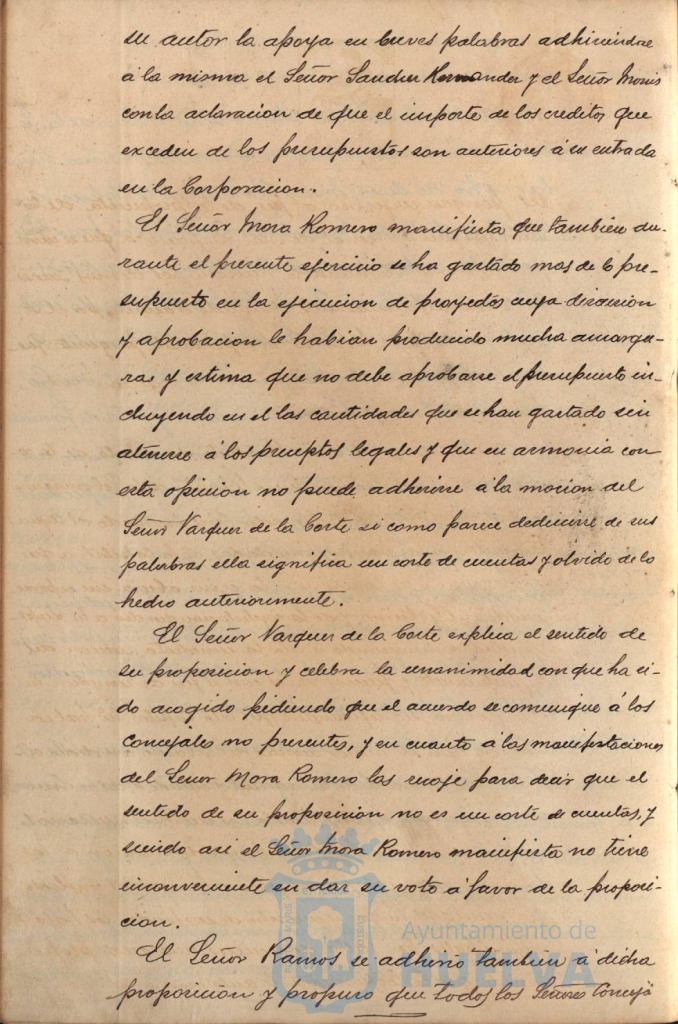 su autor la apoya en breves palabras adhiriendose
á la misma el Señor Sanchez Hernandez y el Señor Monis
con la aclaracion de que el importe de los creditos que
exceden de los presupuestos son anteriores á su entrada
en la Corporacion.
El Señor Mora Romero manifiesta que tambien du-
rante el presente ejercicio se ha gastado mas de lo pre-
supuesto en la ejecucion de proyectos cuya discusion
y aprobacion le habian producido mucha amargu-
ra y estima que no debe aprobarse el presupuesto in-
cluyendo en el las cantidades que se han gastado sin
atenerse á los preceptos legales y que en armonia con
esta opinion no puede adherirse á la mocion del
Señor Vazquez de la Corte si como parece deducirse de sus
palabras ella significa un corte de cuentas y olvido de lo
hecho anteriormente.
El Señor Vazquez de la Corte explica el sentido de
su proposicion y celebra la unanimidad con que ha si-
do acogido pidiendo que el acuerdo se comunique á los
Concejales no presentes, y en cuanto á las manifestaciones
del Señor Mora Romero las recoje para decir que el
sentido de su proposicion no es un corte de cuentas, y
siendo asi el Señor Mora Romero manifiesta no tiene
inconveniente en dar su voto á favor de la proposi-
cion.
El Señor Ramos se adhirió tambien á dicha
proposicion y propuso que todos los Señores Conceja
Ayuntamiento de
HUELVA